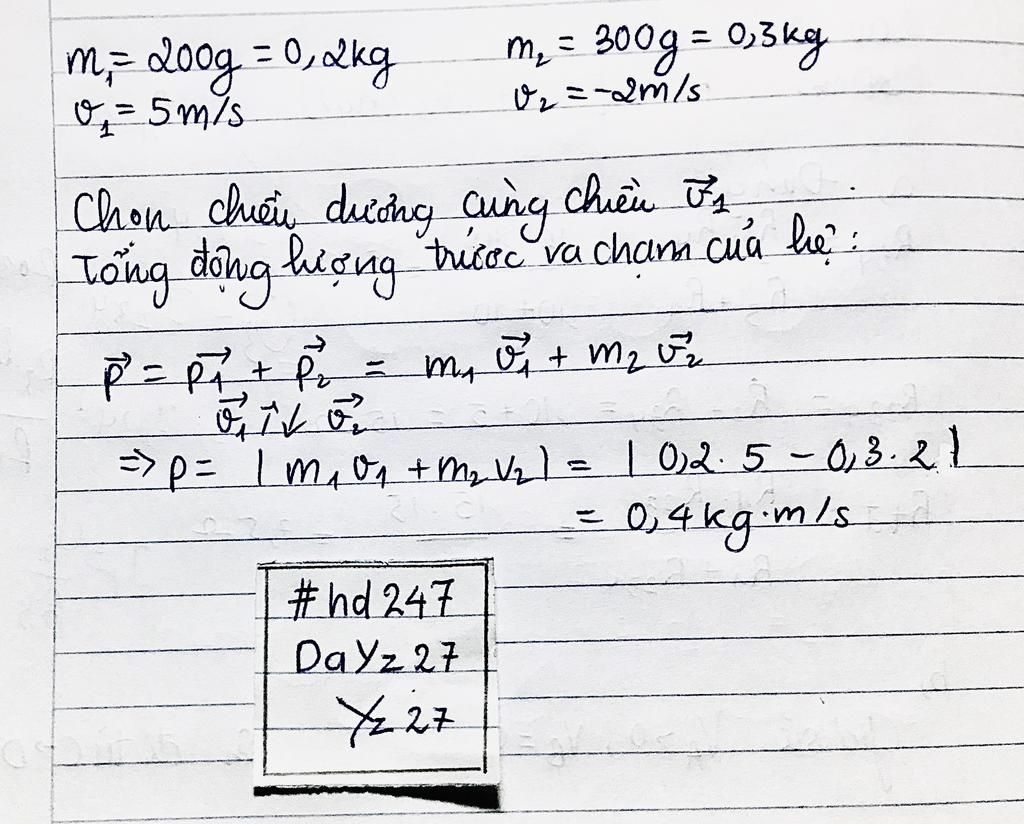 m₁ = 200g = 0,2kg
m₂ = 300g = 0,3kg
v₁ = 5m/s
v₂ = -2m/s
Chọn chiều dương cùng chiều v⃗₁
Tổng động lượng trước va chạm của hệ :
p⃗ = p⃗₁ + p⃗₂ = m₁ v⃗₁ + m₂ v⃗₂
v⃗₁ ↑↓ v⃗₂
=> p = | m₁ v₁ + m₂ v₂ | = | 0,2. 5 - 0,3. 2 |
= 0,4 kg.m/s
#hd247
DaYz27
Yz27